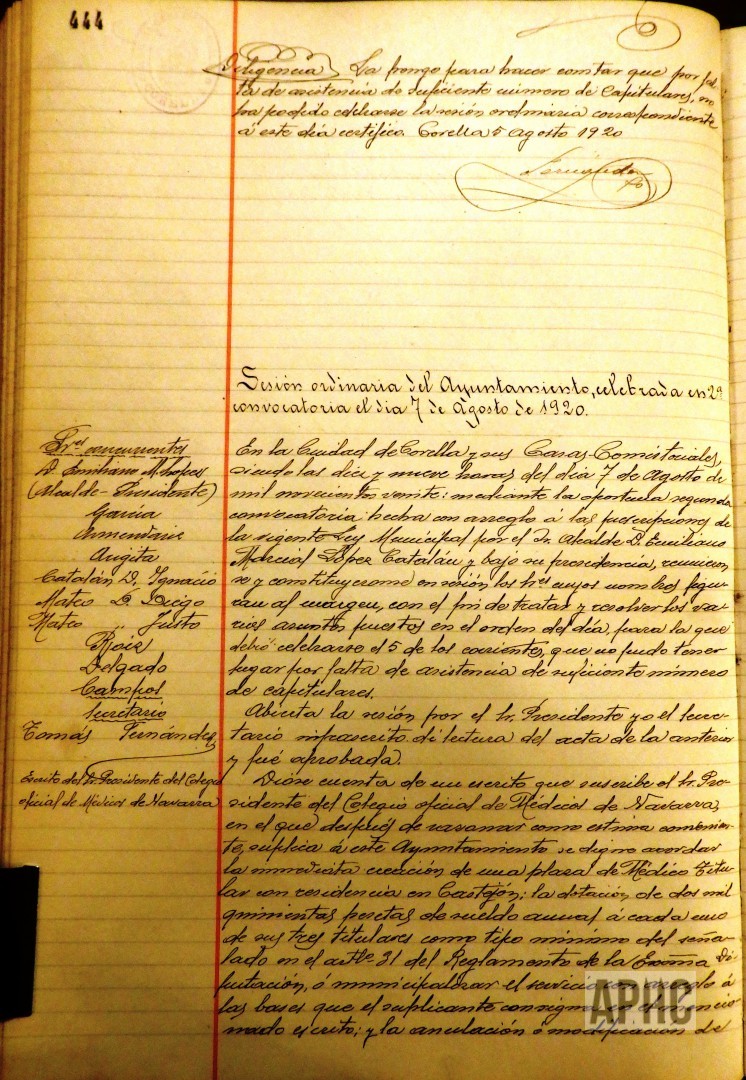 444
Diligencia La pongo para hacer constar que por fal
ta de asistencia de suficiente número de Capitulares, no
ha podido celebrarse la sesión ordinaria correspondiente
á este día certifico. Corella 5 Agosto 1920
Sesión ordinaria del Ayuntamiento, celebrada en 2ª
convocatoria el dia 7 de Agosto de 1920.
Sres concurrentes
D. Emiliano M. Lopez
(Alcalde-Presidente)
Garcia
Armendariz
Angita
Catalán D. Ignacio
Mateo D. Diego
Mateo " Justo
Delgado
Campos
Secretario
Tomás Fernández
En la Ciudad de Corella y sus Casas Consistoriales,
siendo las diez y nueve horas del dia 7 de Agosto de
mil novecientos veinte: mediante la oportuna segunda
convocatoria hecha con arreglo á las prescripciones de
la vigente Ley Municipal por el Sr. Alcalde D. Emiliano
Marcial López Catalán y bajo su presidencia, reunieron
se y constituyeronse en sesión los Sres cuyos nombres figu
ran al margen, con el fin de tratar y resolver los va
rios asuntos puestos en el orden del día, para la que
debió celebrarse el 5 de los corrientes, que no pudo tener
lugar por falta de asistencia de suficiente número
de capitulares.
Abierta la sesión por el Sr. Presidente yo el Secre
tario infrascrito dí lectura del acta de la anterior
y fué aprobada.
Escrito del Sr. Presidente del Colegio
oficial de Médicos de Navarra
Dióse cuenta de un escrito que suscribe el Sr. Pre
sidente del Colegio oficial de Médicos de Navarra,
en el que después de razonar como estima convenien
te, suplica á este Ayuntamiento se digne acordar
la inmediata creación de una plaza de Médico Titu
lar con residencia en Castejón; la dotación de dos mil
quinientas pesetas de sueldo anual á cada uno
de sus tres titulares como tipo mínimo del seña
lado en el artº 31 del Reglamento de la Excma Di
putación, ó municipalizar el servicio con arreglo á
las bases que el suplicante consigna en el mencio
nado escrito; y la anulación ó modificación de
APHC